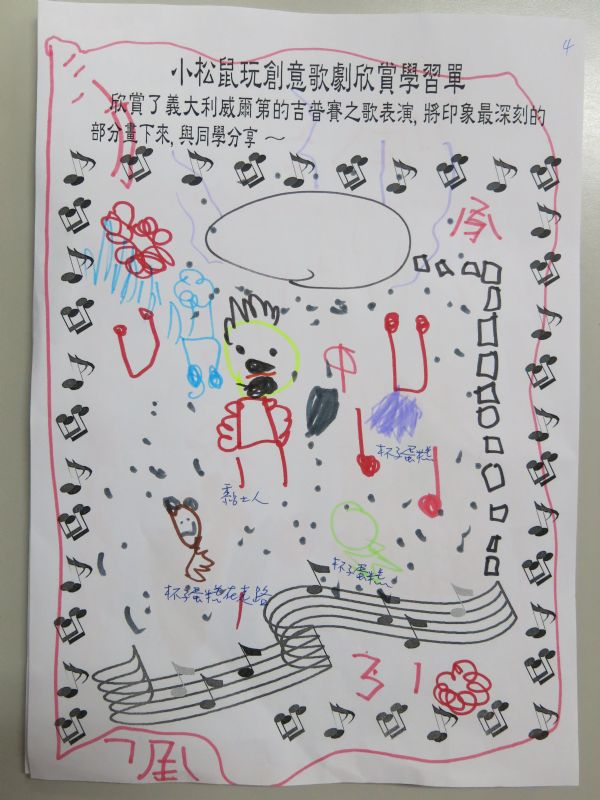 4
小松鼠玩創意歌劇欣賞學習單
欣賞了義大利威爾第的吉普賽之歌表演, 將印象最深刻的
部分畫下來, 與同學分享～
中
杯子蛋糕
黏土人
杯子蛋糕
杯子蛋糕在走路